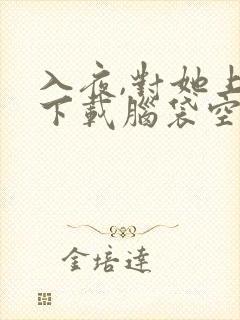 入夜,對她上
下載腦袋空
金培達